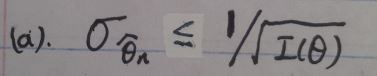 (a). σ_{θ̂_n} ≤ 1/√I(θ)